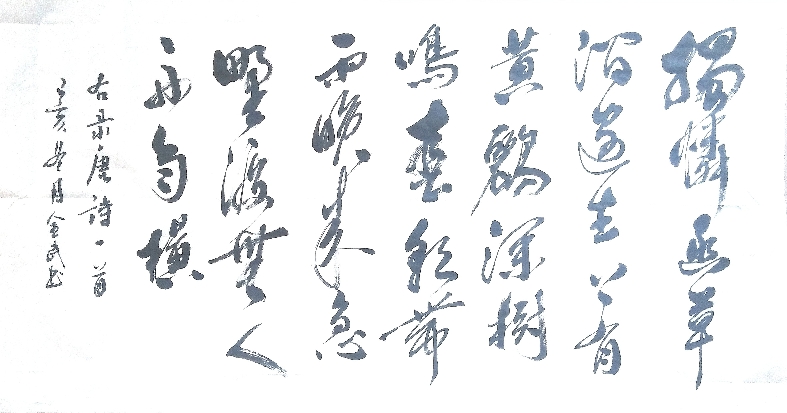 獨憐幽草
澗邊生上有
黃鸝深樹
鳴春潮帶
雨晚来急
野渡無人
舟自橫
右录唐詩一首
亥 月金武书